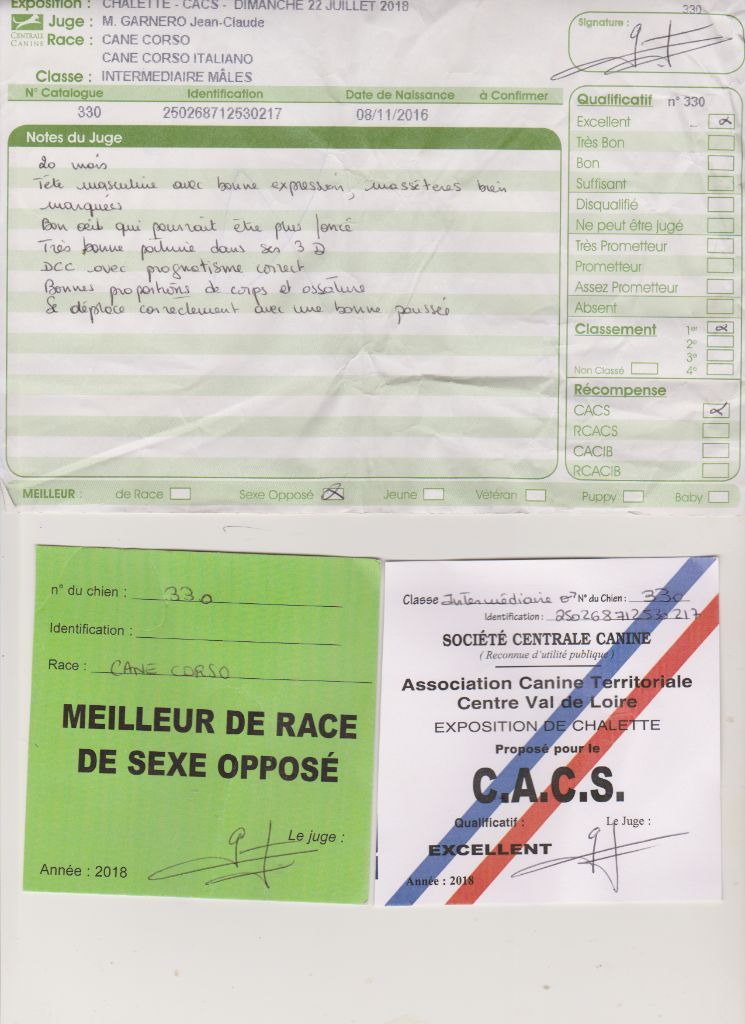 Exposition : CHALETTE - CACS - DIMANCHE 22 JUILLET 2018
330
CENTRALE CANINE
Juge : M. GARNERO Jean-Claude
Race : CANE CORSO
CANE CORSO ITALIANO
Classe : INTERMEDIAIRE MÂLES
Signature :
N° Catalogue Identification Date de Naissance à Confirmer
330 250268712530217 08/11/2016
Notes du Juge
20 mois
Tête masculine avec bonne expression, masséteres bien
marquées
Bon oeil qui pourrait être plus foncé
Très bonne poitrine dans ses 3 D
DCC avec prognatisme correct
Bonnes proportions de corps et ossature
Se déplace correctement avec une bonne poussée
Qualificatif n° 330
Excellent
Très Bon
Bon
Suffisant
Disqualifié
Ne peut être jugé
Très Prometteur
Prometteur
Assez Prometteur
Absent
Classement 1er
2e
3e
Non Classé 4e
Récompense
CACS
RCACS
CACIB
RCACIB
MEILLEUR : de Race Sexe Opposé Jeune Vétéran Puppy Baby
n° du chien : 330
Identification :
Race : CANE CORSO
MEILLEUR DE RACE
DE SEXE OPPOSÉ
Le juge :
Année : 2018
Classe Intermédiaire ♂ N° du Chien : 330
Identification : 250268712530217
SOCIÉTÉ CENTRALE CANINE
( Reconnue d'utilité publique )
Association Canine Territoriale
Centre Val de Loire
EXPOSITION DE CHALETTE
Proposé pour le
C.A.C.S.
Qualificatif : Le Juge :
EXCELLENT
Année : 2018